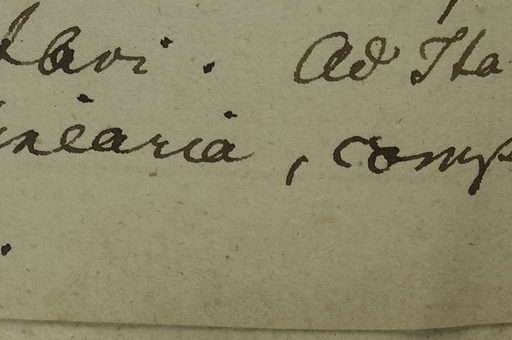 tavi. Ad Ita
inearia, comp
.